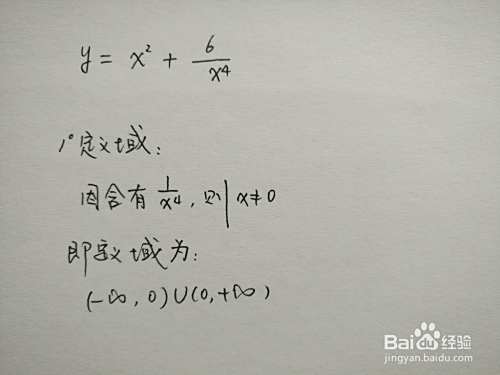 y = x² + 6/x⁴
1°定义域：
因含有 1/x⁴，则 x≠0
即定义域为：
(-∞，0)∪(0,+∞)
Baidu经验
jingyan.baidu.com